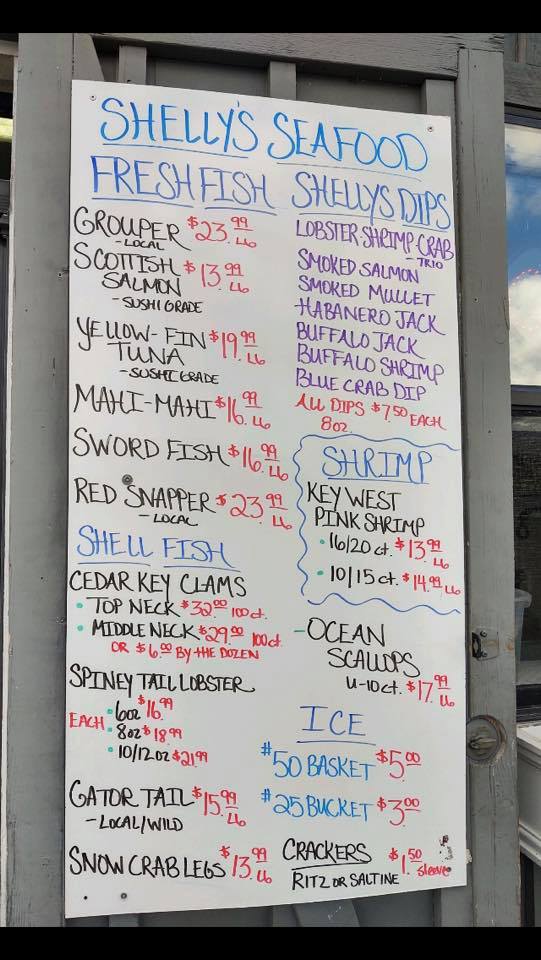 SHELLY'S SEAFOOD
FRESH FISH
GROUPER $23.99 LB
-LOCAL
SCOTTISH $13.99 LB
SALMON
-SUSHI GRADE
YELLOW-FIN $19.99 LB
TUNA
-SUSHI GRADE
MAHI-MAHI $16.99 LB
SWORD FISH $16.99 LB
RED SNAPPER $23.99 LB
-LOCAL
SHELL FISH
CEDAR KEY CLAMS
• TOP NECK $32.00 100ct.
• MIDDLE NECK $29.00 100ct.
OR $6.00 BY THE DOZEN
SPINEY TAIL LOBSTER
EACH
• 6oz $16.99
• 8oz $18.99
• 10/12oz $21.99
GATOR TAIL $15.99 LB
-LOCAL/WILD
SNOW CRAB LEGS $13.99 LB
SHELLYS DIPS
LOBSTER-SHRIMP-CRAB
-TRIO
SMOKED SALMON
SMOKED MULLET
HABANERO JACK
BUFFALO JACK
BUFFALO SHRIMP
BLUE CRAB DIP
ALL DIPS $7.50 EACH
8oz.
SHRIMP
KEY WEST
PINK SHRIMP
• 16/20 ct. $13.99 LB
• 10/15 ct. $14.99 LB
-OCEAN
SCALLOPS
U-10 ct. $17.99 LB
ICE
#50 BASKET $5.00
#25 BUCKET $3.00
CRACKERS $1.50 sleeve
RITZ OR SALTINE